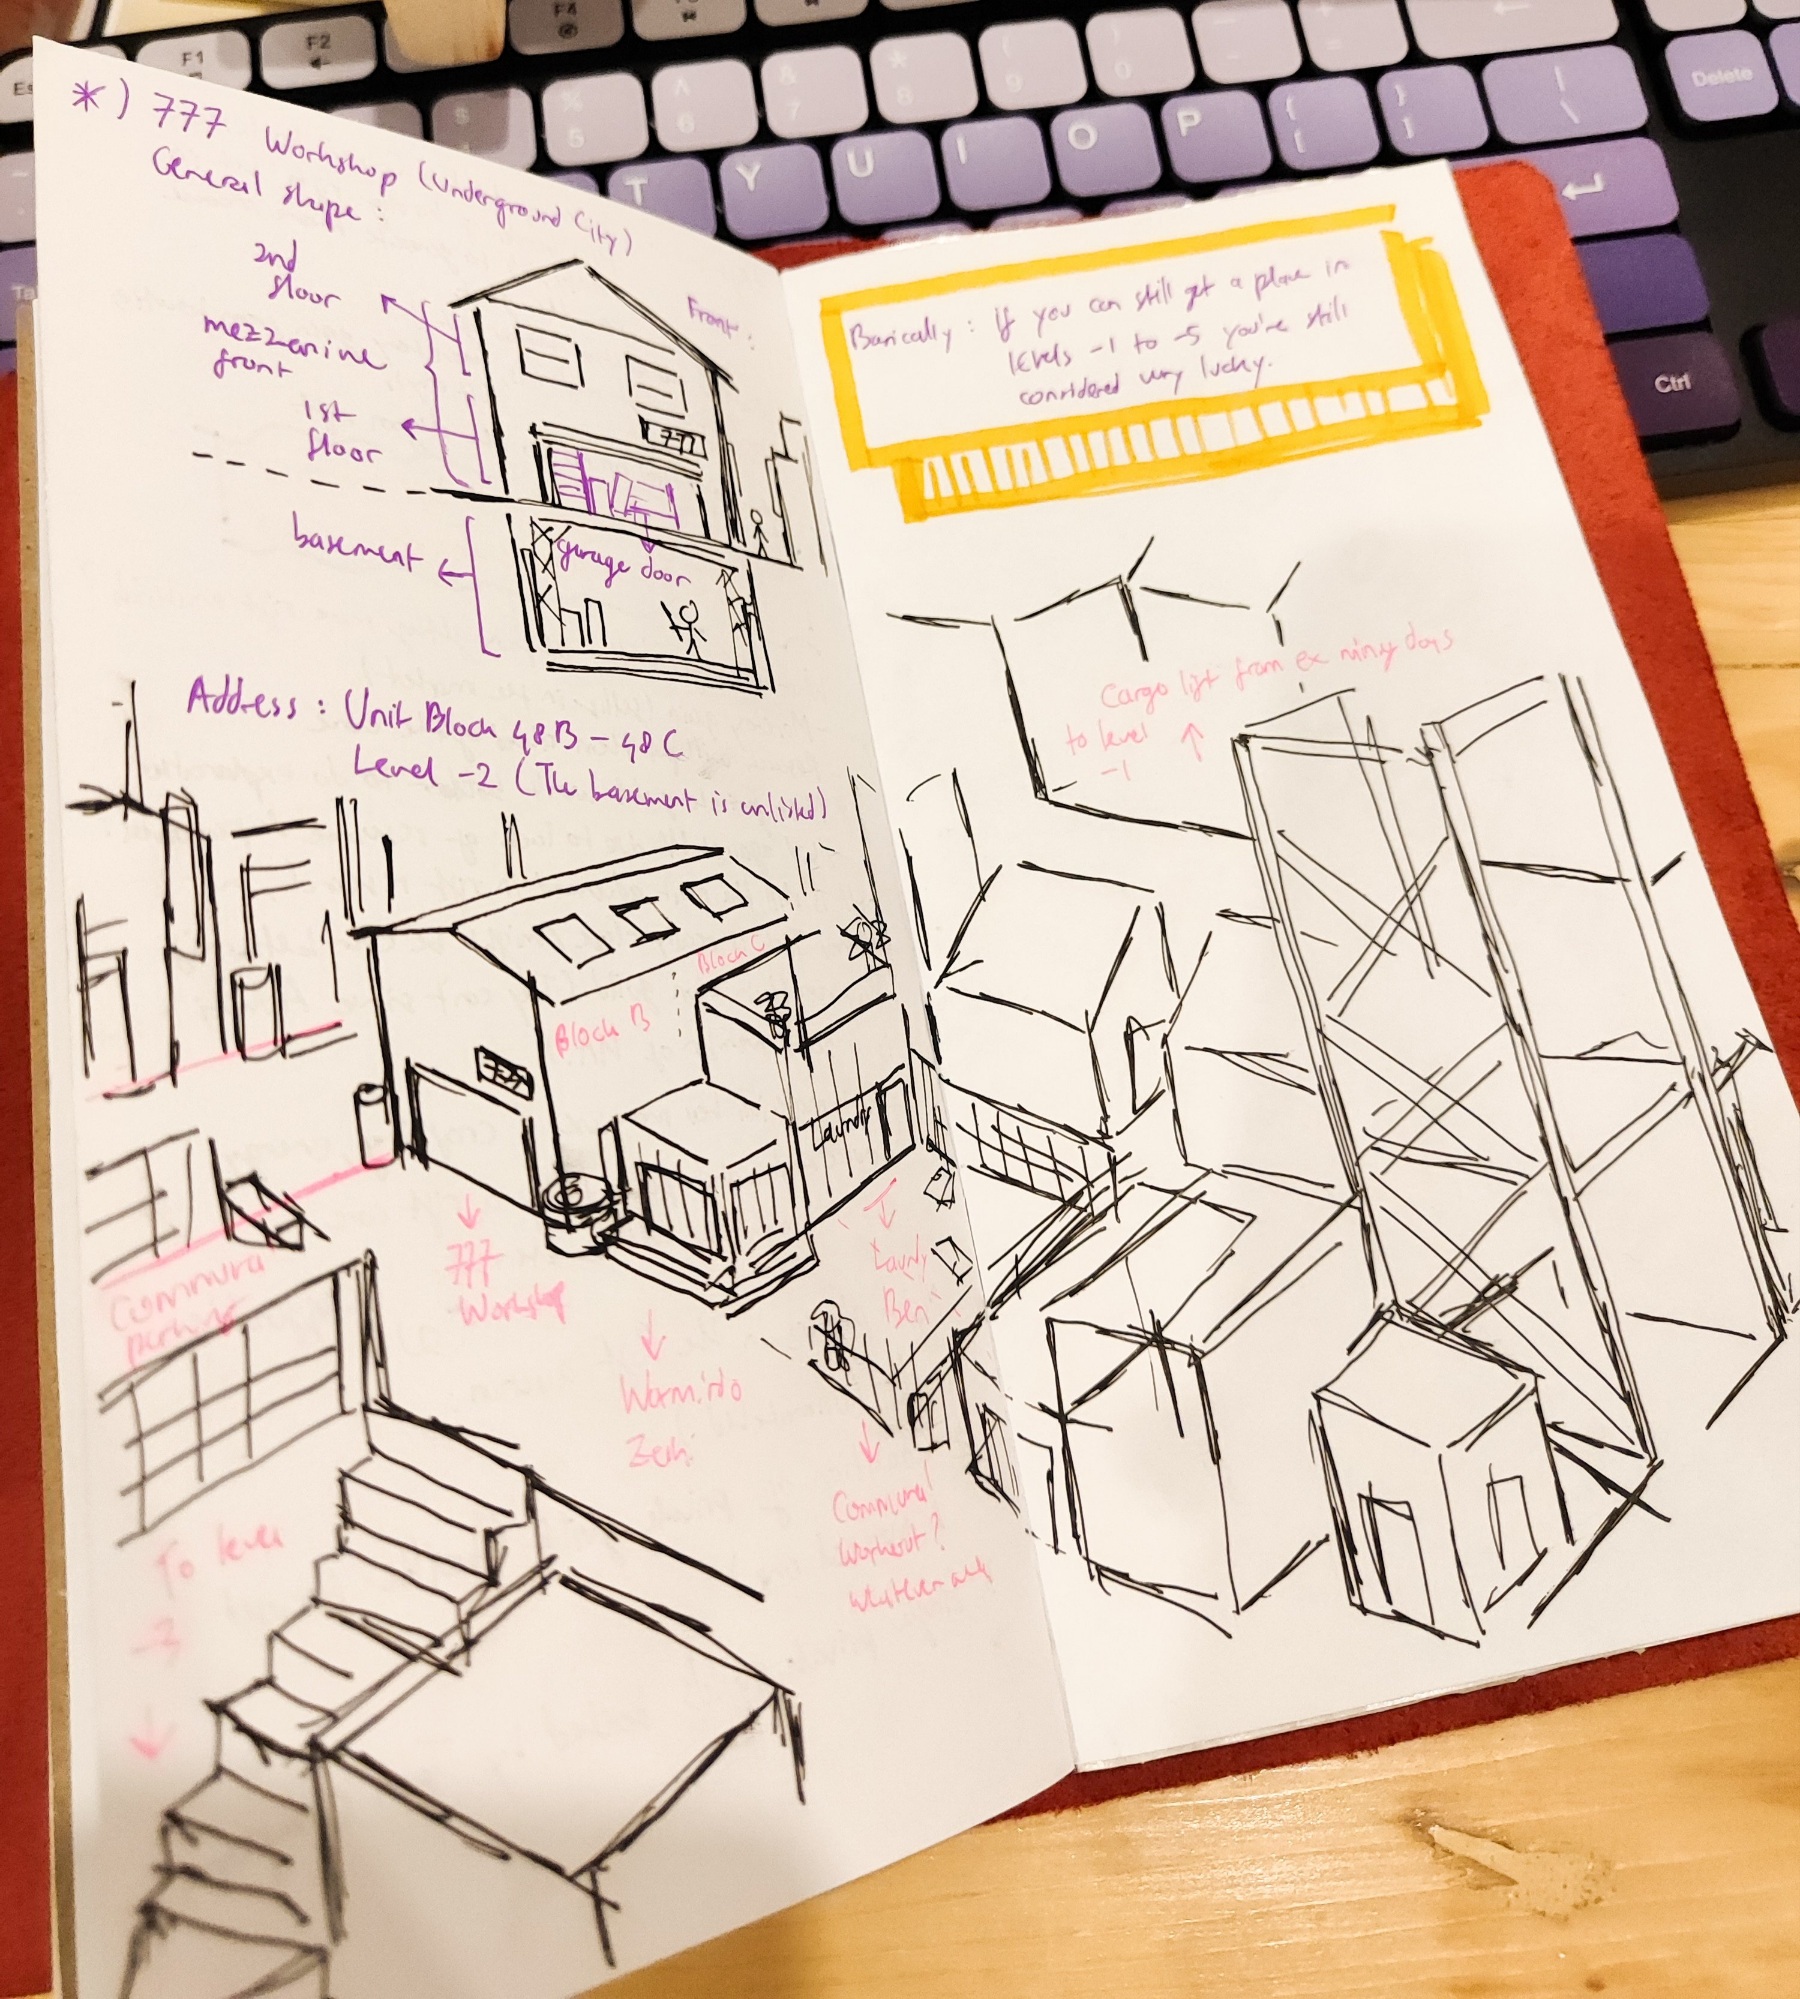 *) 777 Workshop (Underground City)
General shape :
2nd
floor
Front :
mezzanine
front
1st
floor
777
basement
garage door
Address : Unit Block 48B - 48C
Level -2 (The basement is unlisted)
Block C
Block B
777
Laundry
777
Workshop
Communal
parking
Laundry
Ben
Communal
workout?
whatever
To level
Basically : If you can still get a place in
levels -1 to -5 you're still
considered very lucky.
Cargo lift from ex mining days
to level
-1
Esc
F1
F2
F4
5
6
7
8
9
0
T
Y
U
I
O
P
{
[
}
]
|
\
Delete
Ctrl